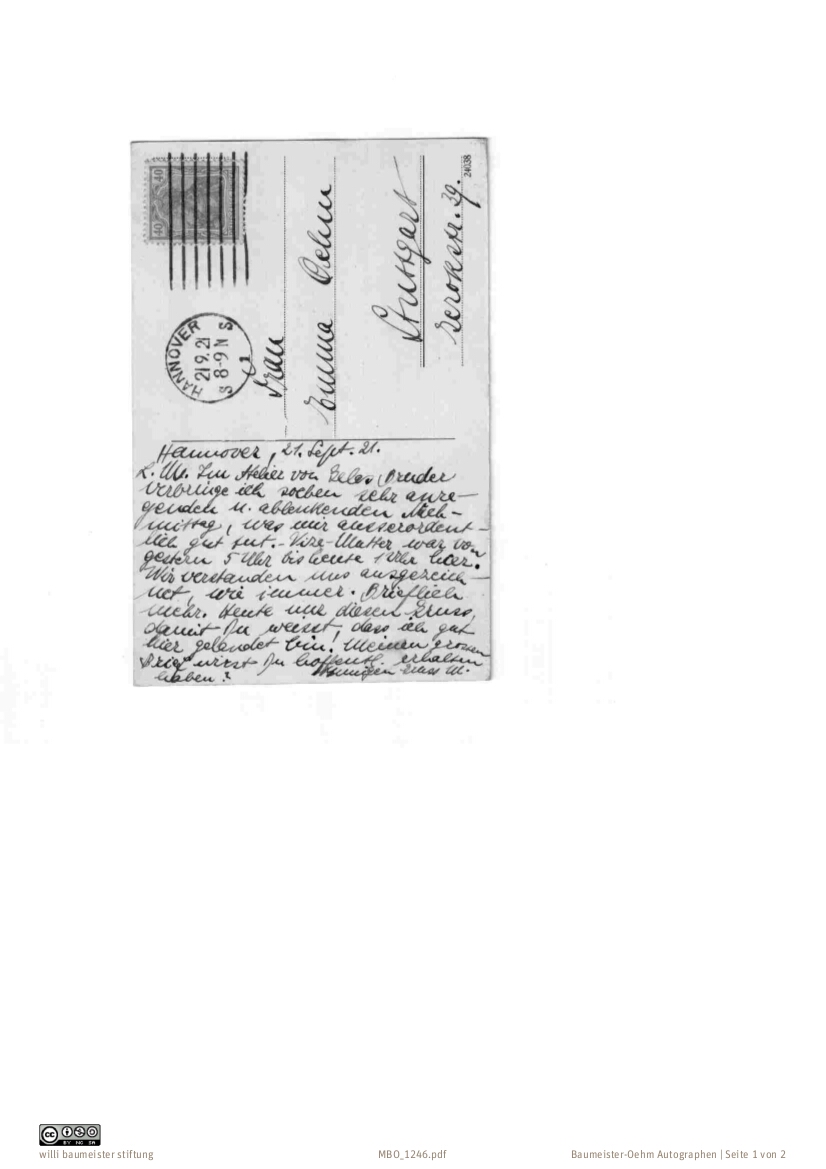 40 40
HANNOVER
21.9.21
S 8-9 N S
Frau
Emma Oehm
Stuttgart
Gerokstr. 39.
24038
Hannover, 21. Sept. 21.
L. M. Im Atelier von Bruder
verbringe ich soeben sehr anre-
genden u. ablenkenden Nach-
mittag, was mir ausserordent-
lich gut tut. - Vize-Mutter war von
gestern 5 Uhr bis heute 1 Uhr hier.
Wir verstanden uns ausgezeich-
net, wie immer. Brieflich
mehr. Heute nur diesen Gruss,
damit Du weisst, dass ich gut
hier gelandet bin! Meinen grossen
Brief wirst Du hoffentl. erhalten
haben? Gruss M.
CC BY NC SA
willi baumeister stiftung
MBO_1246.pdf
Baumeister-Oehm Autographen | Seite 1 von 2